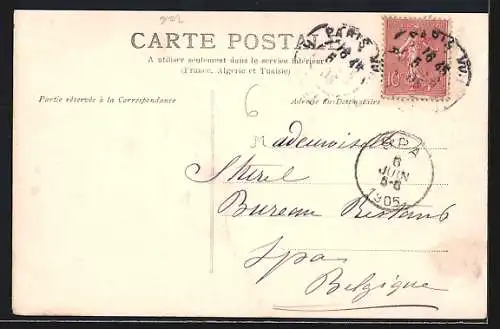 CARTE POSTALE
A utiliser seulement dans le service intérieur
(France, Algérie et Tunisie)
Partie réservée à la Correspondance
Adresse du Destinataire
6
PARIS
18 45
5
PARIS
18 45
5
10
SPA
6
JUIN
5-6
1905
Mademoiselle
Bureau Restant
Spa
Belgique